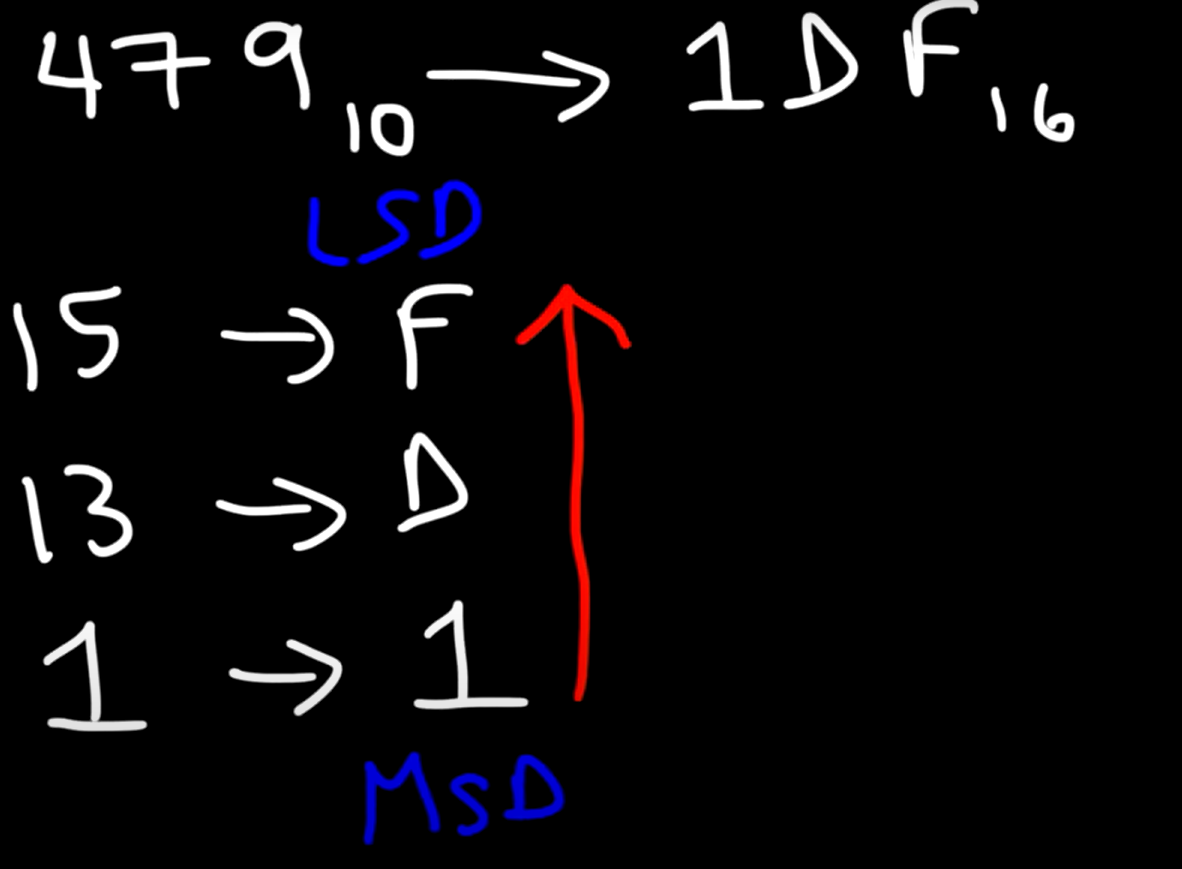 479₁₀ → 1DF₁₆
LSD
15 → F
13 → D
1 → 1
MSD